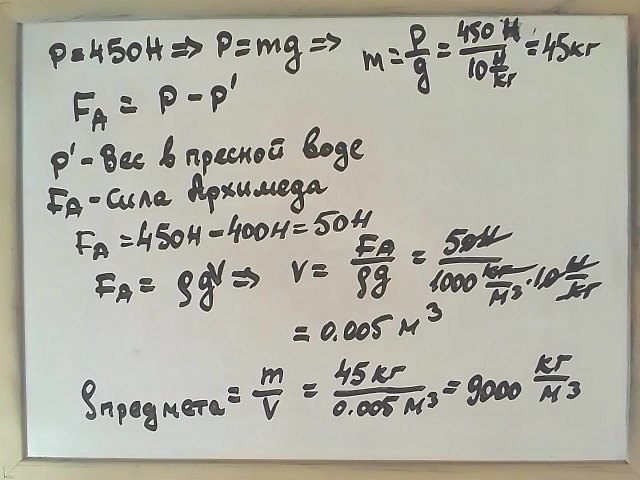 P=450Н => P=mg => m=P/g=450 Н/10 Н/кг=45кг
FA = P-P'
P'-Вес в пресной воде
FA-Сила Архимеда
FA=450Н-400Н=50Н
FA= ρgV => V= FA/ρg = 50Н/1000 кг/м3·10 Н/кг
= 0.005 м3
ρпредмета = m/V = 45 кг/0.005 м3 = 9000 кг/м3